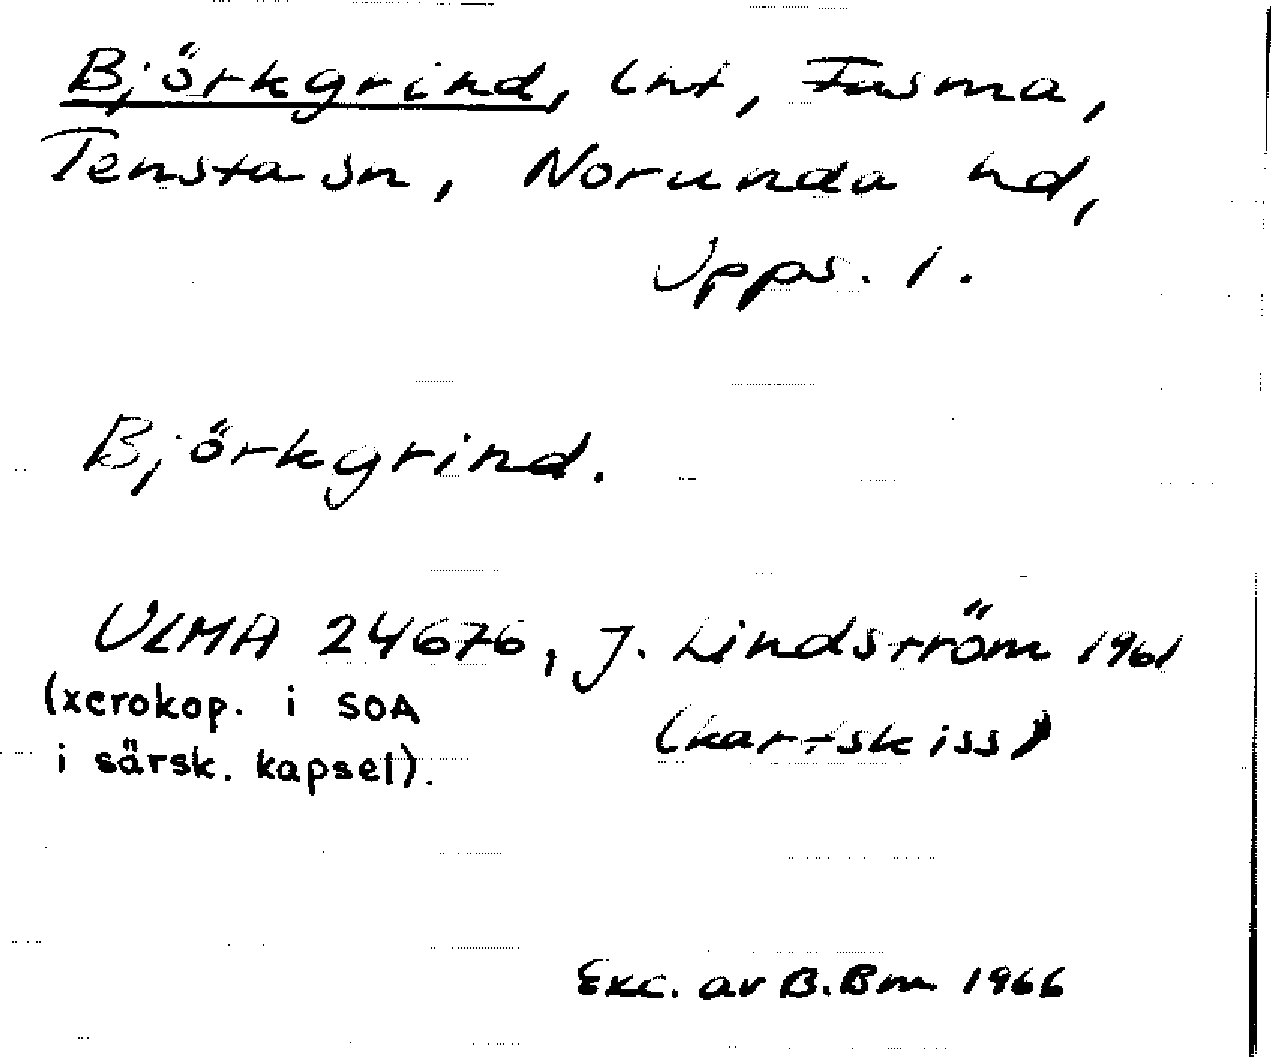 Björkgrind, lnt, Fasma,
Tensta sn, Norunda hd,
Upps. l.
Björkgrind.
ULMA 24676, J. Lindström 1961
(xerokop. i SOA
(kartskiss)
i särsk. kapsel).
Exc. av B. Bm 1966